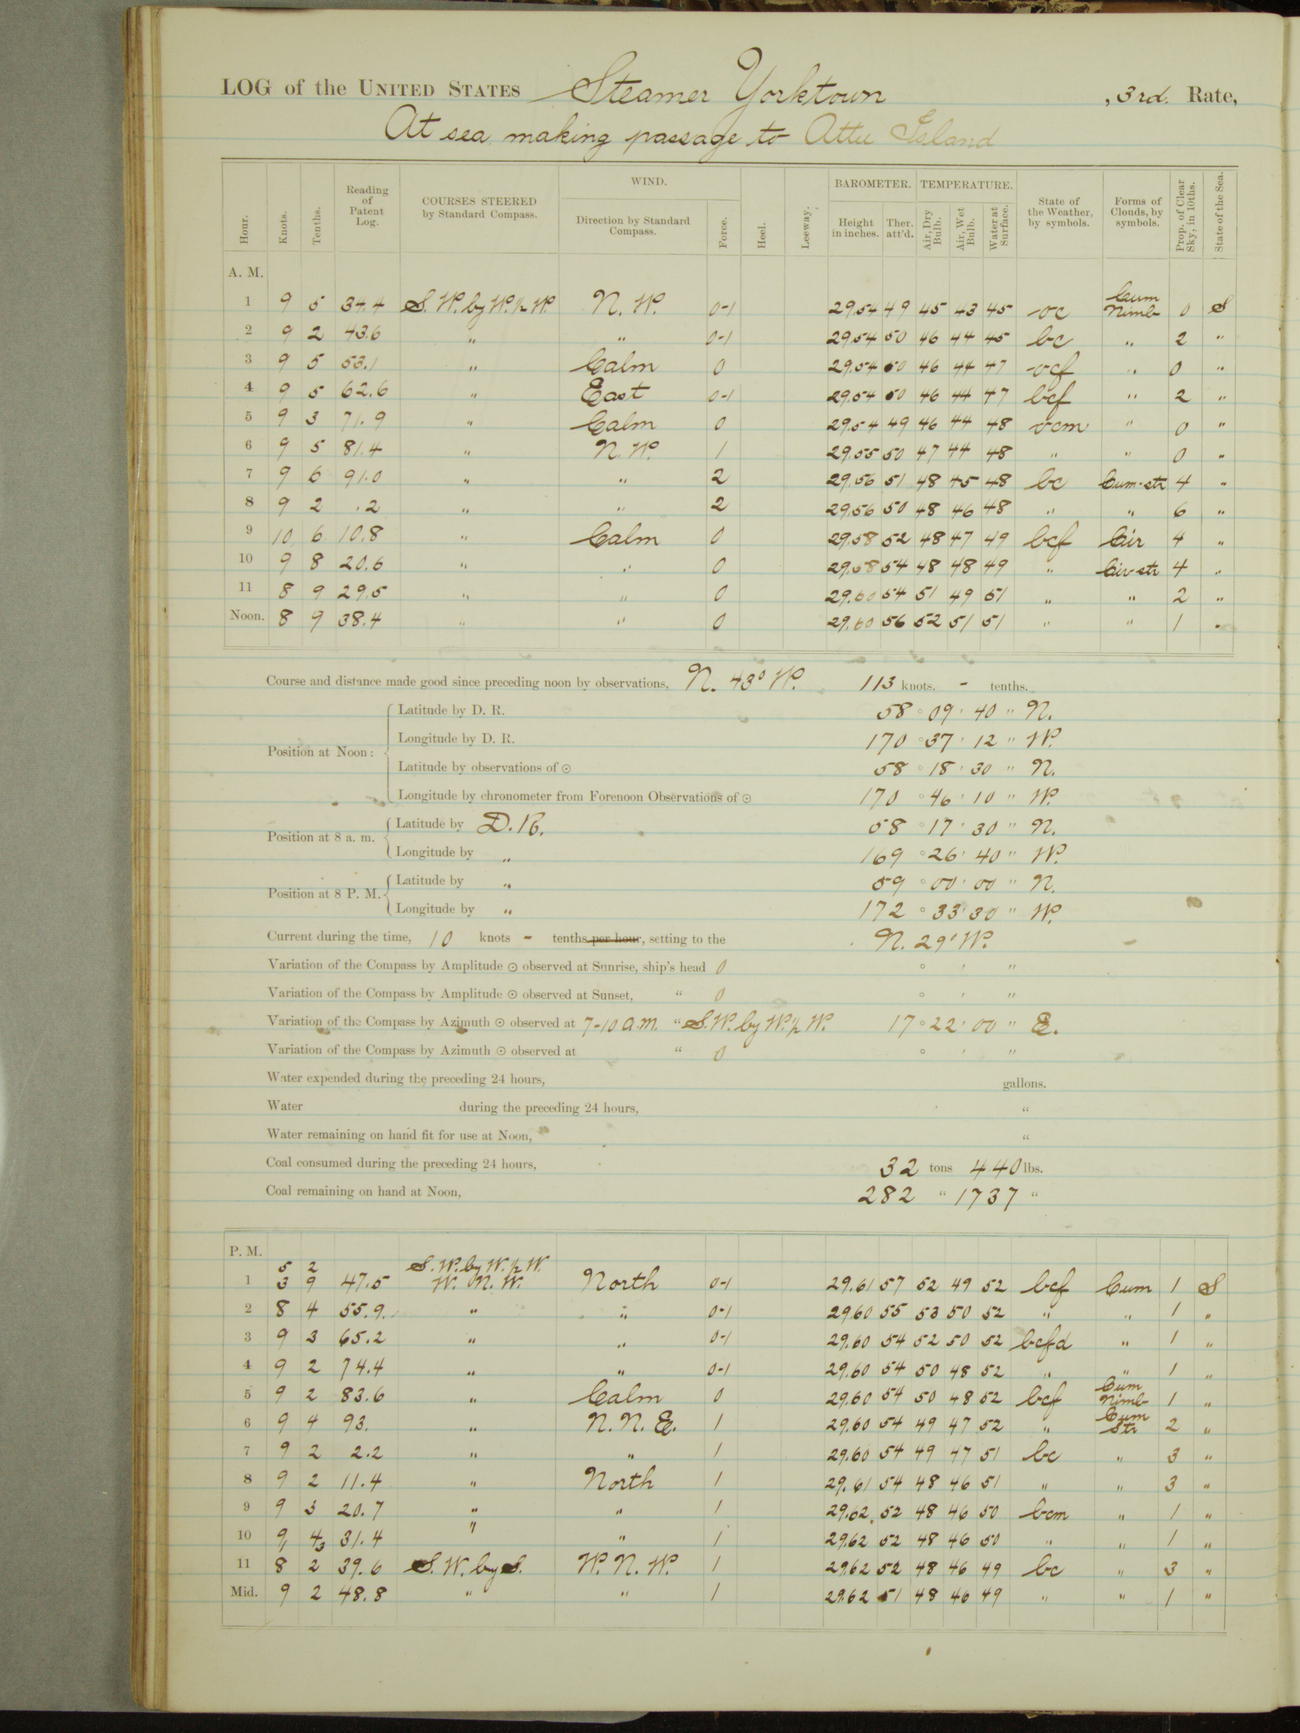 LOG of the UNITED STATES Steamer Yorktown , 3rd. Rate,
At sea making passage to Attu Island
Hour. Knots. Tenths. Reading of Patent Log. COURSES STEERED by Standard Compass. WIND. Direction by Standard Compass. Force. Heel. Leeway. BAROMETER. Height in inches. Ther. att'd. TEMPERATURE. Air, Dry Bulb. Air, Wet Bulb. Water at Surface. State of the Weather, by symbols. Forms of Clouds, by symbols. Prop. of Clear Sky, in 10ths. State of the Sea.
A. M.
1 9 5 34.4 S.W. by W. ½ W. N. W. 0-1 29.54 49 45 43 45 oc Cum Nimb 0 S
2 9 2 43.6 " " 0-1 29.54 50 46 44 45 bc " 2 "
3 9 5 53.1 " Calm 0 29.54 50 46 44 47 ocf " 0 "
4 9 5 62.6 " East 0-1 29.54 50 46 44 47 bcf " 2 "
5 9 3 71.9 " Calm 0 29.54 49 46 44 48 ocm " 0 "
6 9 5 81.4 " N. W. 1 29.55 50 47 44 48 " " 0 "
7 9 6 91.0 " " 2 29.56 51 48 45 48 bc Cum-str 4 "
8 9 2 .2 " " 2 29.56 50 48 46 48 " " 6 "
9 10 6 10.8 " Calm 0 29.58 52 48 47 49 bcf Cir 4 "
10 9 8 20.6 " " 0 29.58 54 48 48 49 " Cir-str 4 "
11 8 9 29.5 " " 0 29.60 54 51 49 51 " " 2 "
Noon. 8 9 38.4 " " 0 29.60 56 52 51 51 " " 1 "
Course and distance made good since preceding noon by observations, N. 43° W. 113 knots. - tenths.
Position at Noon: Latitude by D. R. 58 ° 09 ' 40 " N.
Longitude by D. R. 170 ° 37 ' 12 " W.
Latitude by observations of ☉ 58 ° 18 ' 30 " N.
Longitude by chronometer from Forenoon Observations of ☉ 170 ° 46 ' 10 " W.
Position at 8 a. m. Latitude by D.R. 58 ° 17 ' 30 " N.
Longitude by " 169 ° 26 ' 40 " W.
Position at 8 P. M. Latitude by " 59 ° 00 ' 00 " N.
Longitude by " 172 ° 33 ' 30 " W.
Current during the time, 10 knots - tenths per hour, setting to the N. 29° W.
Variation of the Compass by Amplitude ☉ observed at Sunrise, ship's head 0 ° ' "
Variation of the Compass by Amplitude ☉ observed at Sunset, " 0 ° ' "
Variation of the Compass by Azimuth ☉ observed at 7-10 a.m. " S.W. by W. ½ W. 17 ° 22 ' 00 " E.
Variation of the Compass by Azimuth ☉ observed at " 0 ° ' "
Water expended during the preceding 24 hours, gallons.
Water during the preceding 24 hours, "
Water remaining on hand fit for use at Noon, "
Coal consumed during the preceding 24 hours, 32 tons 440 lbs.
Coal remaining on hand at Noon, 282 " 1737 "
P. M.
5 2 S. W. by W. ½ W.
1 3 9 47.5 W. N. W. North 0-1 29.61 57 52 49 52 bcf Cum 1 S
2 8 4 55.9 " " 0-1 29.60 55 53 50 52 " " 1 "
3 9 3 65.2 " " 0-1 29.60 54 52 50 52 bcfd " 1 "
4 9 2 74.4 " " 0-1 29.60 54 50 48 52 " " 1 "
5 9 2 83.6 " Calm 0 29.60 54 50 48 52 bcf Cum Nimb 1 "
6 9 4 93. " N. N. E. 1 29.60 54 49 47 52 " Cum Str 2 "
7 9 2 2.2 " " 1 29.60 54 49 47 51 bc " 3 "
8 9 2 11.4 " North 1 29.61 54 48 46 51 " " 3 "
9 9 3 20.7 " " 1 29.62 52 48 46 50 bcm " 1 "
10 9 31.4 " " 1 29.62 52 48 46 50 " " 1 "
11 8 2 39.6 S. W. by S. W. N. W. 1 29.62 52 48 46 49 bc " 3 "
Mid. 9 2 48.8 " " 1 29.62 51 48 46 49 " " 1 "